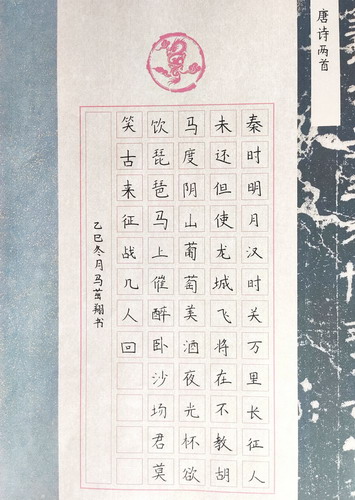 唐诗两首
秦时明月汉时关万里长征人
未还但使龙城飞将在不教胡
马度阴山葡萄美酒夜光杯欲
饮琵琶马上催醉卧沙场君莫
笑古来征战几人回
乙巳冬月马茁翔书